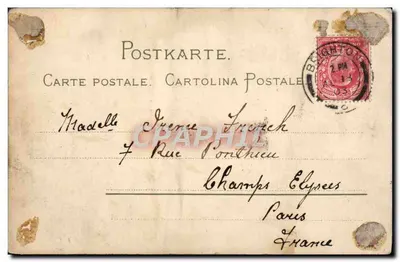 POSTKARTE.
CARTE POSTALE. CARTOLINA POSTALE
BRIGHTON
Madelle Irene French
7 Rue Ponthieu
Champs Elysees
Paris
France